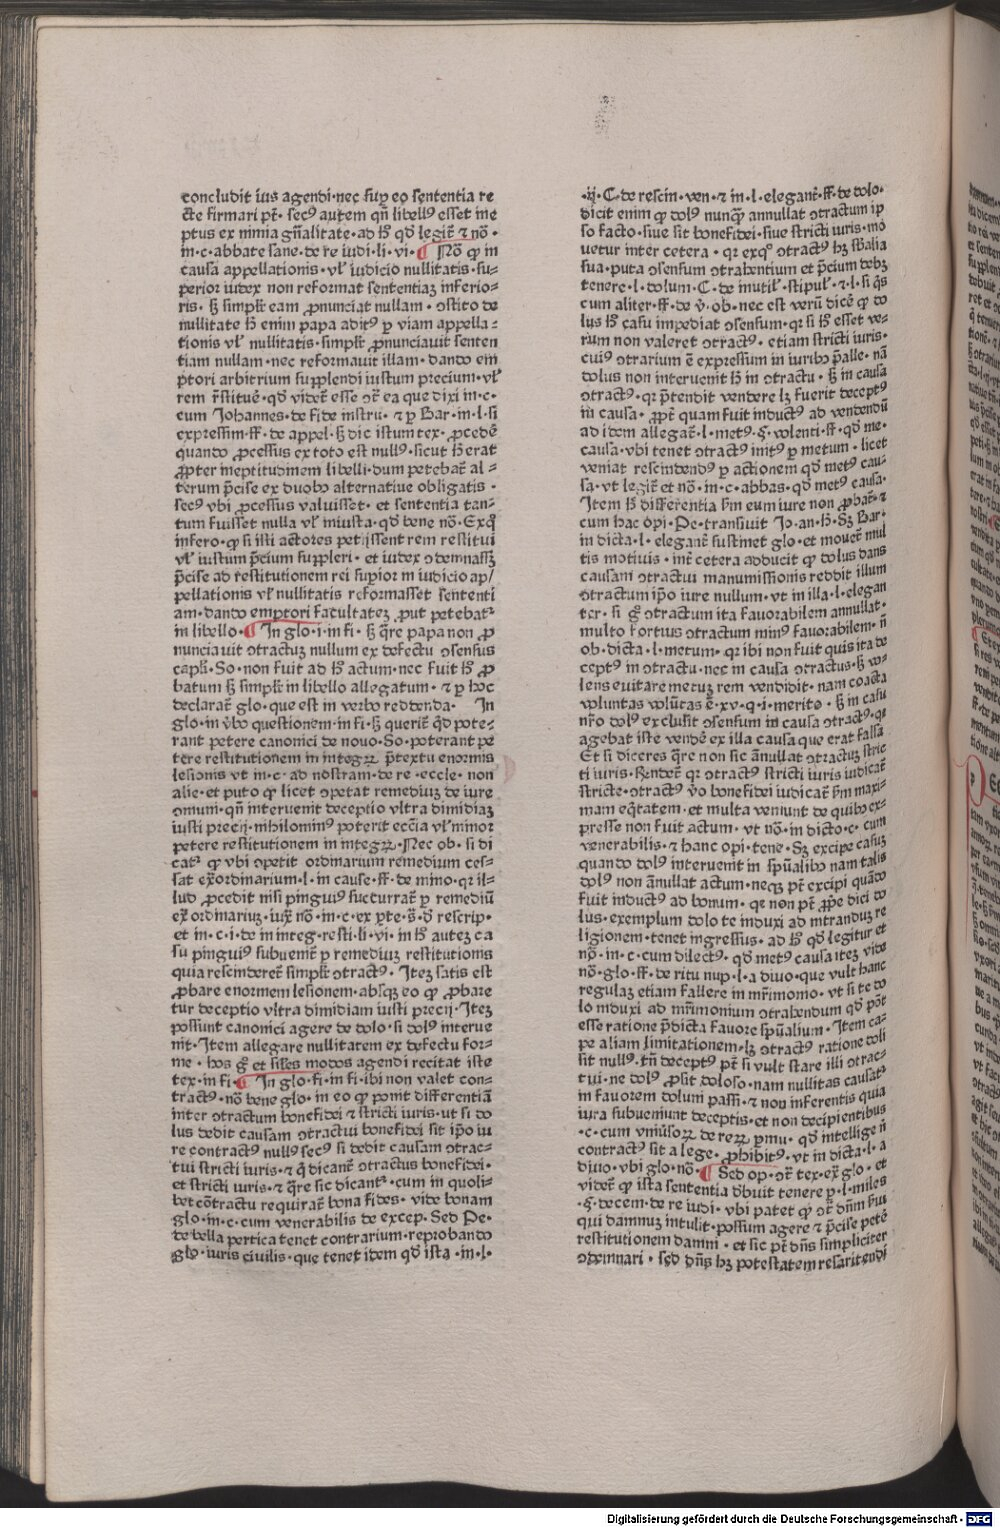 concludit ius agendi·nec suꝑ eo sententia re
cte firmari pt̄· secꝰ autem qn̄ libellꝰ esset ine
ptus ex nimia gn̄alitate·ad hͦ qd̓ legit̄ ⁊ nō·
in·c·abbate sane·de re iudi·li·vi· Nō ꝙ in
causa appellationis·vl̓ iudicio nullitatis·su⸗
perior iudex non reformat sententiaꝫ inferio⸗
ris· sꝫ simplr̄ eam ꝓnunciat nullam· ꝯstito de
nullitate hͦ enim papa aditꝰ ꝑ viam appella⸗
tionis vl̓ nullitatis·simplr̄ ꝓnunciauit senten
tiam nullam·nec reformauit illam·dando em
ptori arbitrium supplendi iustum precium·vl̓
rem r̄stituē·qd̓ videt̄ esse ꝯt̄ ea que dixi in·c·
cum Johannes·de fide instru·⁊ ꝑ Bar·in·l·si
expressim·ff·de appel·sꝫ dic istum tex·ꝓcedē
quando ꝓcessus ex toto est nullꝰ·sicut hͦ erat
ꝓpter ineptitudinem libelli·dum petebat̄ al⸗
terum p̄cise ex duobꝰ alternatiue obligatis·
secꝰ vbi ꝓcessus valuisset·et sententia tan⸗
tum fuisset nulla vl̓ iniusta·qd̓ bene nō·Exqͦ
infero·ꝙ si isti actores petijssent rem restitui
vl̓ iustum p̄cium suppleri·et iudex ꝯdemnassꝫ
p̄cise ad restitutionem rei supior in iudicio ap/
pellationis vl̓ nullitatis reformasset sententi
am·dando emptori facultateꝫ ꝓut petebat̄
in libello· In glo·i·in fi·sꝫ q̄re papa non ꝓ
nunciauit ꝯtractuꝫ nullum ex defectu ꝯsensus
capl̓i·So·non fuit ad hͦ actum·nec fuit hͦ ꝓ
batum sꝫ simplr̄ in libello allegatum·⁊ ꝑ hoc
declarat̄ glo·que est in verbo reddenda· In
glo·in v̓bo questionem·in fi·sꝫ querit̄ qd̓ pote⸗
rant petere canonici de nouo·So·poterant pe
tere restitutionem in integꝝ p̄textu enormis
lesionis vt in·c·ad nostram·de re·eccle·non
alie·et puto ꝙ licet ꝯpetat remediuꝫ de iure
ꝯmuni·qn̄ interuenit deceptio vltra dimidiaꝫ
iusti precij·nihilominꝰ poterit ecc̄ia vl̓ minor
petere restitutionem in integꝝ·Nec ob·si di
cat̄ ꝙ vbi ꝯpetit ordinarium remedium ces⸗
sat ex̄ordinarium·l·in cause·ff·de mino·qr il⸗
lud ꝓcedit nisi pinguiꝰ succurrat̄ ꝑ remediū
ex̄ ordinariuꝫ·iux̄ nō·in·c·ex pte·s̄·d̓ rescrip·
et in·c·i·de in integ·resti·li·vi·in hͦ auteꝫ ca
su pinguiꝰ subuenit̄ ꝑ remedium restitutionis
quia rescinderet̄ simplr̄ ꝯtractꝰ· Iteꝫ satis est
ꝓbare enormem lesionem·absqꝫ eo ꝙ ꝓbare
tur deceptio vltra dimidiam iusti precij·Iteꝫ
possunt canonici agere de dolo·si dolꝰ interue
nit·Item allegare nullitatem ex defectu for⸗
me·hos gͦ et siles modos agendi recitat iste
tex·in fi· In glo·fi·in fi·ibi non valet con⸗
tractꝰ·nō bene glo·in eo ꝙ ponit differentiā
inter ꝯtractum bonefidei ⁊ stricti iuris·ut si do
lus dedit causam ꝯtractui bonefidei sit ip̄o iu
re contractꝰ nullꝰ secꝰ si dedit causam ꝯtrac⸗
tui stricti iuris·⁊ q̄ dicant̄ ꝯtractus bonefidei·
et stricti iuris·⁊ q̄re sic dicant̄·cum in quoli⸗
bet cōtractu requirat̄ bona fides·vide bonam
glo·in·c·cum venerabilis de excep·Sed Pe·
de bella pertica tenet contrarium·reprobando
glo·iuris ciuilis·que tenet idem qd̓ ista·in·l·
·ij·C·de rescin·ven·⁊ in·l·elegant̄·ff·de dolo·
dicit enim ꝙ dolꝰ nunqꝫ annullat ꝯtractum ip
so facto·siue sit bonefidei·siue stricti iuris·mo
uetur inter cetera·qr exqͦ ꝯtractꝰ hꝫ sb̄alia
sua·puta ꝯsensum ꝯtrahentium et p̄cium debꝫ
tenere·l·dolum·C·de mutil̓·stipul̓·⁊·l·si q̓s
cum aliter·ff·de v̓·ob·nec est verū dicē ꝙ do
lus hͦ casu impediat ꝯsensum·qr si hͦ esset ve⸗
rum non valeret ꝯtractꝰ·etiam stricti iuris·
cuiꝰ ꝯtrarium ē expressum in iuribꝰ p̄alle·nā
dolus non interuenit hͦ in ꝯtractu·sꝫ in causa
ꝯtractꝰ·qr p̄tendit vendere lꝫ fuerit deceptꝰ
in causa·ꝓpt̄ quam fuit inductꝰ ad vendendū
ad idem allegat̄·l·metꝰ·§·volenti·ff·qd̓ me·
causa·vbi tenet ꝯtractꝰ initꝰ ꝑ metum·licet
veniat rescindendꝰ ꝑ actionem qd̓ metꝰ cau⸗
sa·vt legit̄ et nō·in·c·abbas·qd̓ metꝰ causa·
Item hͦ differentia hm̄ eum iure non ꝓbat̄·⁊
cum hac opi·Pe·transiuit Jo·an·hͦ·Sꝫ Bar·
in dicta·l·elegant̄ sustinet glo·et mouet̄ mul
tis motiuis·int̄ cetera adducit ꝙ dolus dans
causam ꝯtractui manumissionis reddit illum
ꝯtractum ip̄o iure nullum·vt in illa·l·elegan
ter·si gͦ ꝯtractum ita fauorabilem annullat·
multo fortius ꝯtractum minꝰ fauorabilem·n̄
ob·dicta·l·metum·qr ibi non fuit quis ita de
ceptꝰ in ꝯtractu·nec in causa ꝯtractus·sꝫ vo⸗
lens euitare metuꝫ rem vendidit·nam coacta
voluntas volūtas ē·xv·q·i·merito·sꝫ in casu
nr̄o dolꝰ exclusit ꝯsensum in causa ꝯtractꝰ·qr
agebat iste vendē ex illa causa que erat falsa
Et si diceres q̄re non sic ānullat ꝯtractuꝫ stric
ti iuris·Rn̄deret̄ qr ꝯtractꝰ stricti iuris iudicat̄
stricte·ꝯtractꝰ v̓o bonefidei iudicat̄ hm̄ maxi⸗
mam eq̄tatem·et multa veniunt de quibꝰ ex⸗
presse non fuit actum·vt nō·in dicto·c·cum
venerabilis·⁊ hanc opi·tene·Sꝫ excipe casuꝫ
quando dolꝰ interuenit in sp̄ualibꝰ nam talis
dolꝰ non ānullat actum·neqꝫ pt̄ excipi quādo
fuit inductꝰ ad bonum·qr non pt̄ ꝓpe dici do
lus·exemplum dolo te induxi ad intranduꝫ re
ligionem·tenet ingressus·ad hͦ qd̓ legitur et
nō·in·c·cum dilectꝰ·qd̓ metꝰ causa iteꝫ vide
nō·glo·ff·de ritu nup·l·a diuo·que vult hanc
regulaꝫ etiam fallere in mr̄imonio·vt si te do
lo induxi ad mr̄imonium ꝯtrahendum qd̓ pōt
esse ratione p̄dicta fauore sp̄ualium·Item ca⸗
pe aliam limitationem·lꝫ ꝯtractꝰ ratione doli
sit nullꝰ·tn̄ deceptꝰ pt̄ si vult stare illi ꝯtrac⸗
tui·ne dolꝰ ꝓsit doloso·nam nullitas causat̄
in fauorem dolum passi·⁊ non inferentis quia
iura subueniunt deceptis·et non decipientibus
·c·cum vniūsoꝝ de reꝝ ꝑmu·qd̓ intellige n̄
contractꝰ sit a lege·ꝓhibitꝰ·vt in dicta·l·a
diuo·vbi glo·nō· Sed op·ꝯt̄ tex·ex̄ glo·et
videt̄ ꝙ ista sententia d̓buit tenere p·l·miles
·§·decem·de re iudi·vbi patet ꝙ ꝯt̄ dn̄m s̄ui
qui damnuꝫ intulit·possum agere ⁊ p̄cise petē
restitutionem damni·et sic pt̄ dn̄s simpliciter
ꝯdemnari·sed dn̄s hꝫ potestatem resartiendi
Digitalisierung gefördert durch die Deutsche Forschungsgemeinschaft - DFG